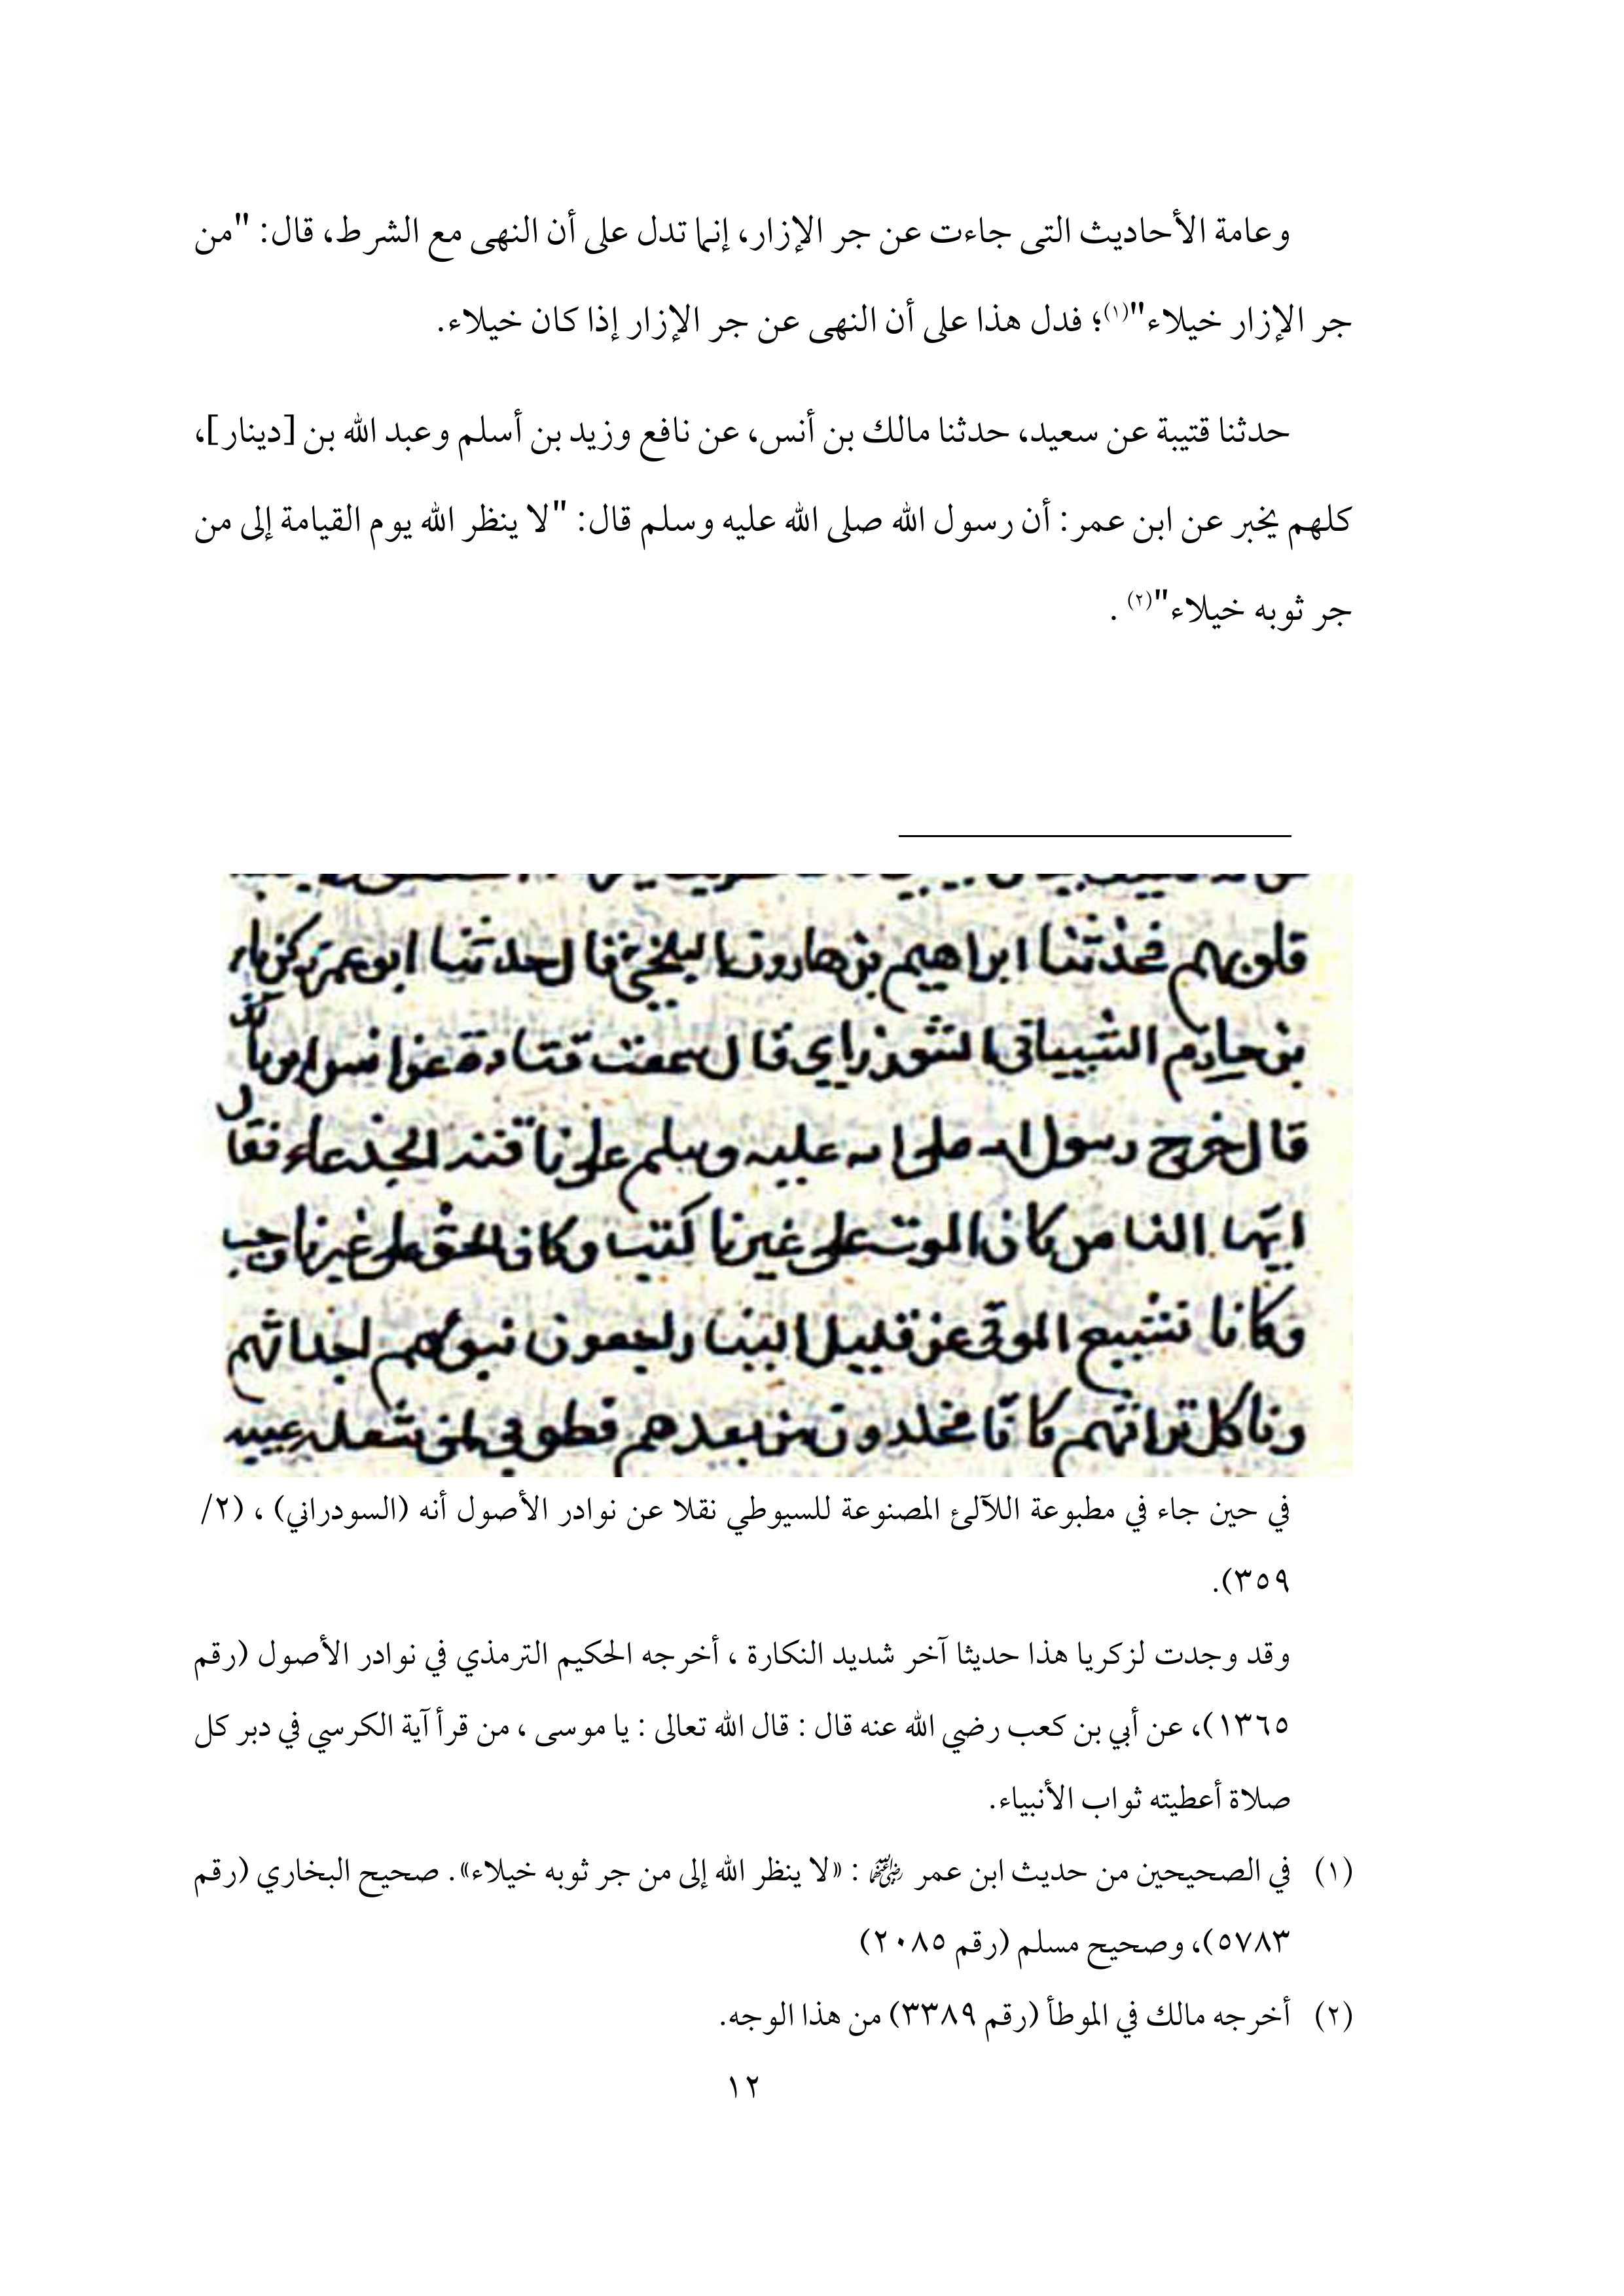 وعامة الأحاديث التى جاءت عن جر الإزار، إنما تدل على أن النهى مع الشرط، قال: "من
جر الإزار خيلاء"(١)؛ فدل هذا على أن النهى عن جر الإزار إذا كان خيلاء.
حدثنا قتيبة عن سعيد، حدثنا مالك بن أنس، عن نافع وزيد بن أسلم وعبد الله بن [دينار]،
كلهم يخبر عن ابن عمر: أن رسول الله صلى الله عليه وسلم قال: "لا ينظر الله يوم القيامة إلى من
جر ثوبه خيلاء"(٢) .
قلوبهم فحدثنا ابراهيم بن هارون البلخي قال حدثنا ابو عمر زكرياء
بن حازم الشيباني قال سمعت قتادة عن انس بن مالك
قال خرج رسول الله صلى الله عليه وسلم على ناقته الجذعاء فقال
ايها الناس كان الموت على غيرنا كتب وكان الحق على غيرنا وجب
وكانا نشيع الموتى عن قليل الينا راجعون نبوئهم اجداثهم
وناكل تراثهم كانا مخلدون من بعدهم فطوبى لمن شغله عيبه
في حين جاء في مطبوعة اللآلئ المصنوعة للسيوطي نقلا عن نوادر الأصول أنه (السودراني) ، (٢/
٣٥٩).
وقد وجدت لزكريا هذا حديثا آخر شديد النكارة ، أخرجه الحكيم الترمذي في نوادر الأصول (رقم
١٣٦٥)، عن أبي بن كعب رضي الله عنه قال : قال الله تعالى : يا موسى ، من قرأ آية الكرسي في دبر كل
صلاة أعطيته ثواب الأنبياء.
(١) في الصحيحين من حديث ابن عمر رضي الله عنهما : «لا ينظر الله إلى من جر ثوبه خيلاء». صحيح البخاري (رقم
٥٧٨٣)، وصحيح مسلم (رقم ٢٠٨٥)
(٢) أخرجه مالك في الموطأ (رقم ٣٣٨٩) من هذا الوجه.
١٢